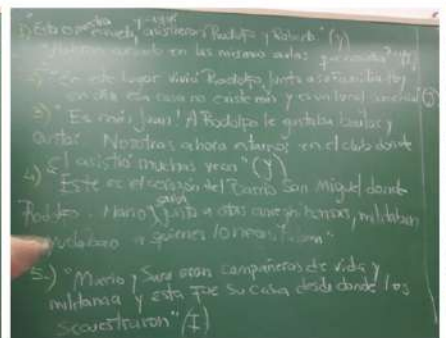 1) "Esta es nuestra escuela, y aquí asistieron Rodolfo y Roberto." (Y)
en las mismas aulas
2) "En este lugar vivió Rodolfo, junto a su familia hoy
en día esa casa no existe más y es un local comercial"
3) "Es más Juan! A Rodolfo le gustaba bailar y
Nosotras ahora estamos en el club donde
él asistió muchas veces" (Y)
4) "Este es el corazón del Barrio San Miguel donde
Rodolfo, Mario, junto a otas militaban
ayudaban a quienes lo necesitaban"
5.) "Mario y Sara eran compañeros de vida y
militancia y esta fue su casa desde donde los
secuestraron" (I)